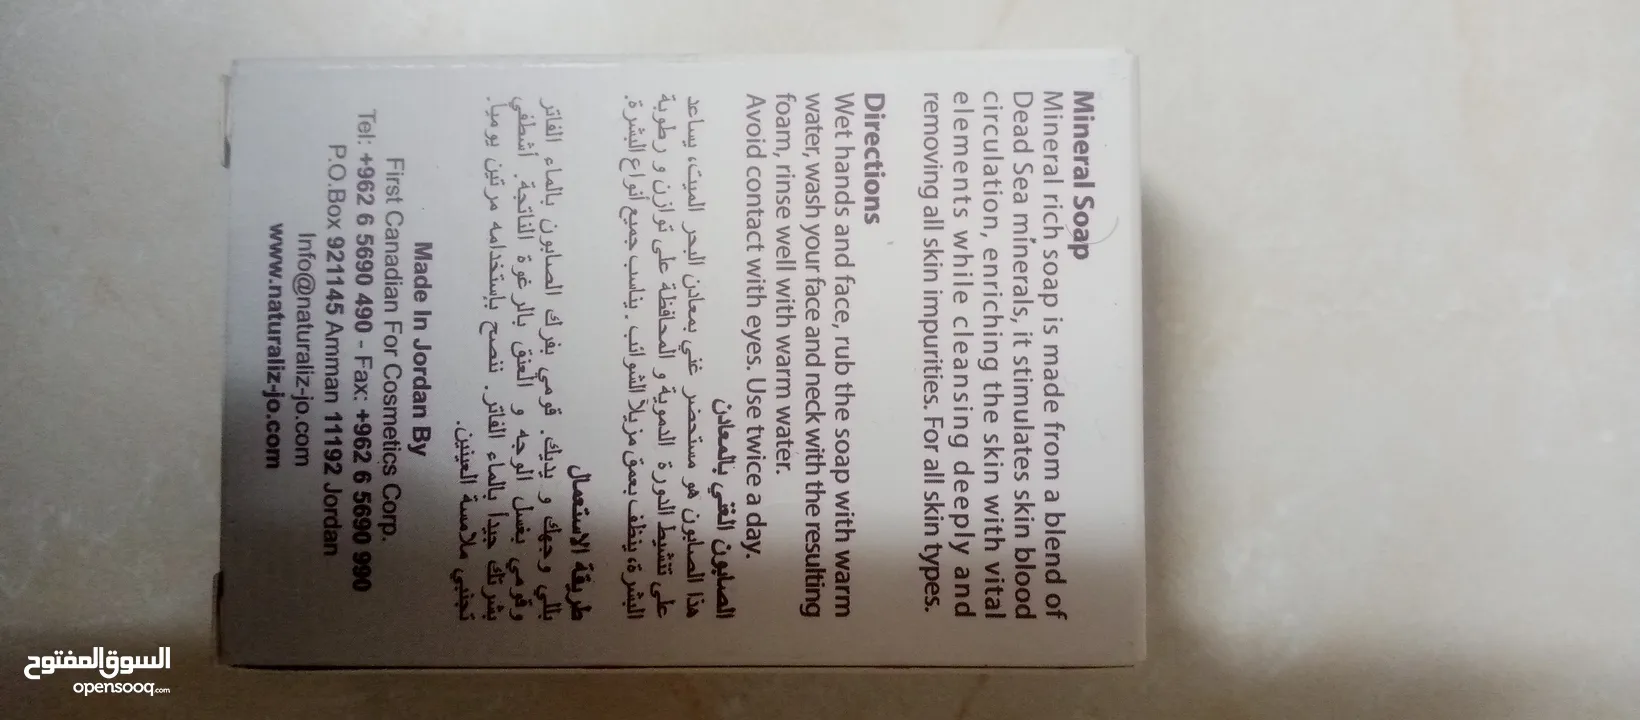 Mineral Soap
Mineral rich soap is made from a blend of
Dead Sea minerals, it stimulates skin blood
circulation, enriching the skin with vital
elements while cleansing deeply and
removing all skin impurities. For all skin types.
Directions
Wet hands and face, rub the soap with warm
water, wash your face and neck with the resulting
foam, rinse well with warm water.
Avoid contact with eyes. Use twice a day.
الصابون الغني بالمعادن
هذا الصابون هو مستحضر غني بمعادن البحر الميت، يساعد
على تنشيط الدورة الدموية و المحافظة على توازن و رطوبة
البشرة، ينظف بعمق مزيلاً الشوائب . يناسب جميع أنواع البشرة.
طريقة الإستعمال
بللي وجهك و يديك. قومي بفرك الصابون بالماء الفاتر
وقومي بغسل الوجه و العنق بالرغوة الناتجة. أشطفي
بشرتك جيداً بالماء الفاتر. ننصح بإستخدامه مرتين يومياً.
تجنبي ملامسة العينين.
Made In Jordan By
First Canadian For Cosmetics Corp.
Tel: +962 6 5690 490 - Fax: +962 6 5690 990
P.O.Box 921145 Amman 11192 Jordan
Info@naturaliz-jo.com
www.naturaliz-jo.com
السوق المفتوح
opensooq.com